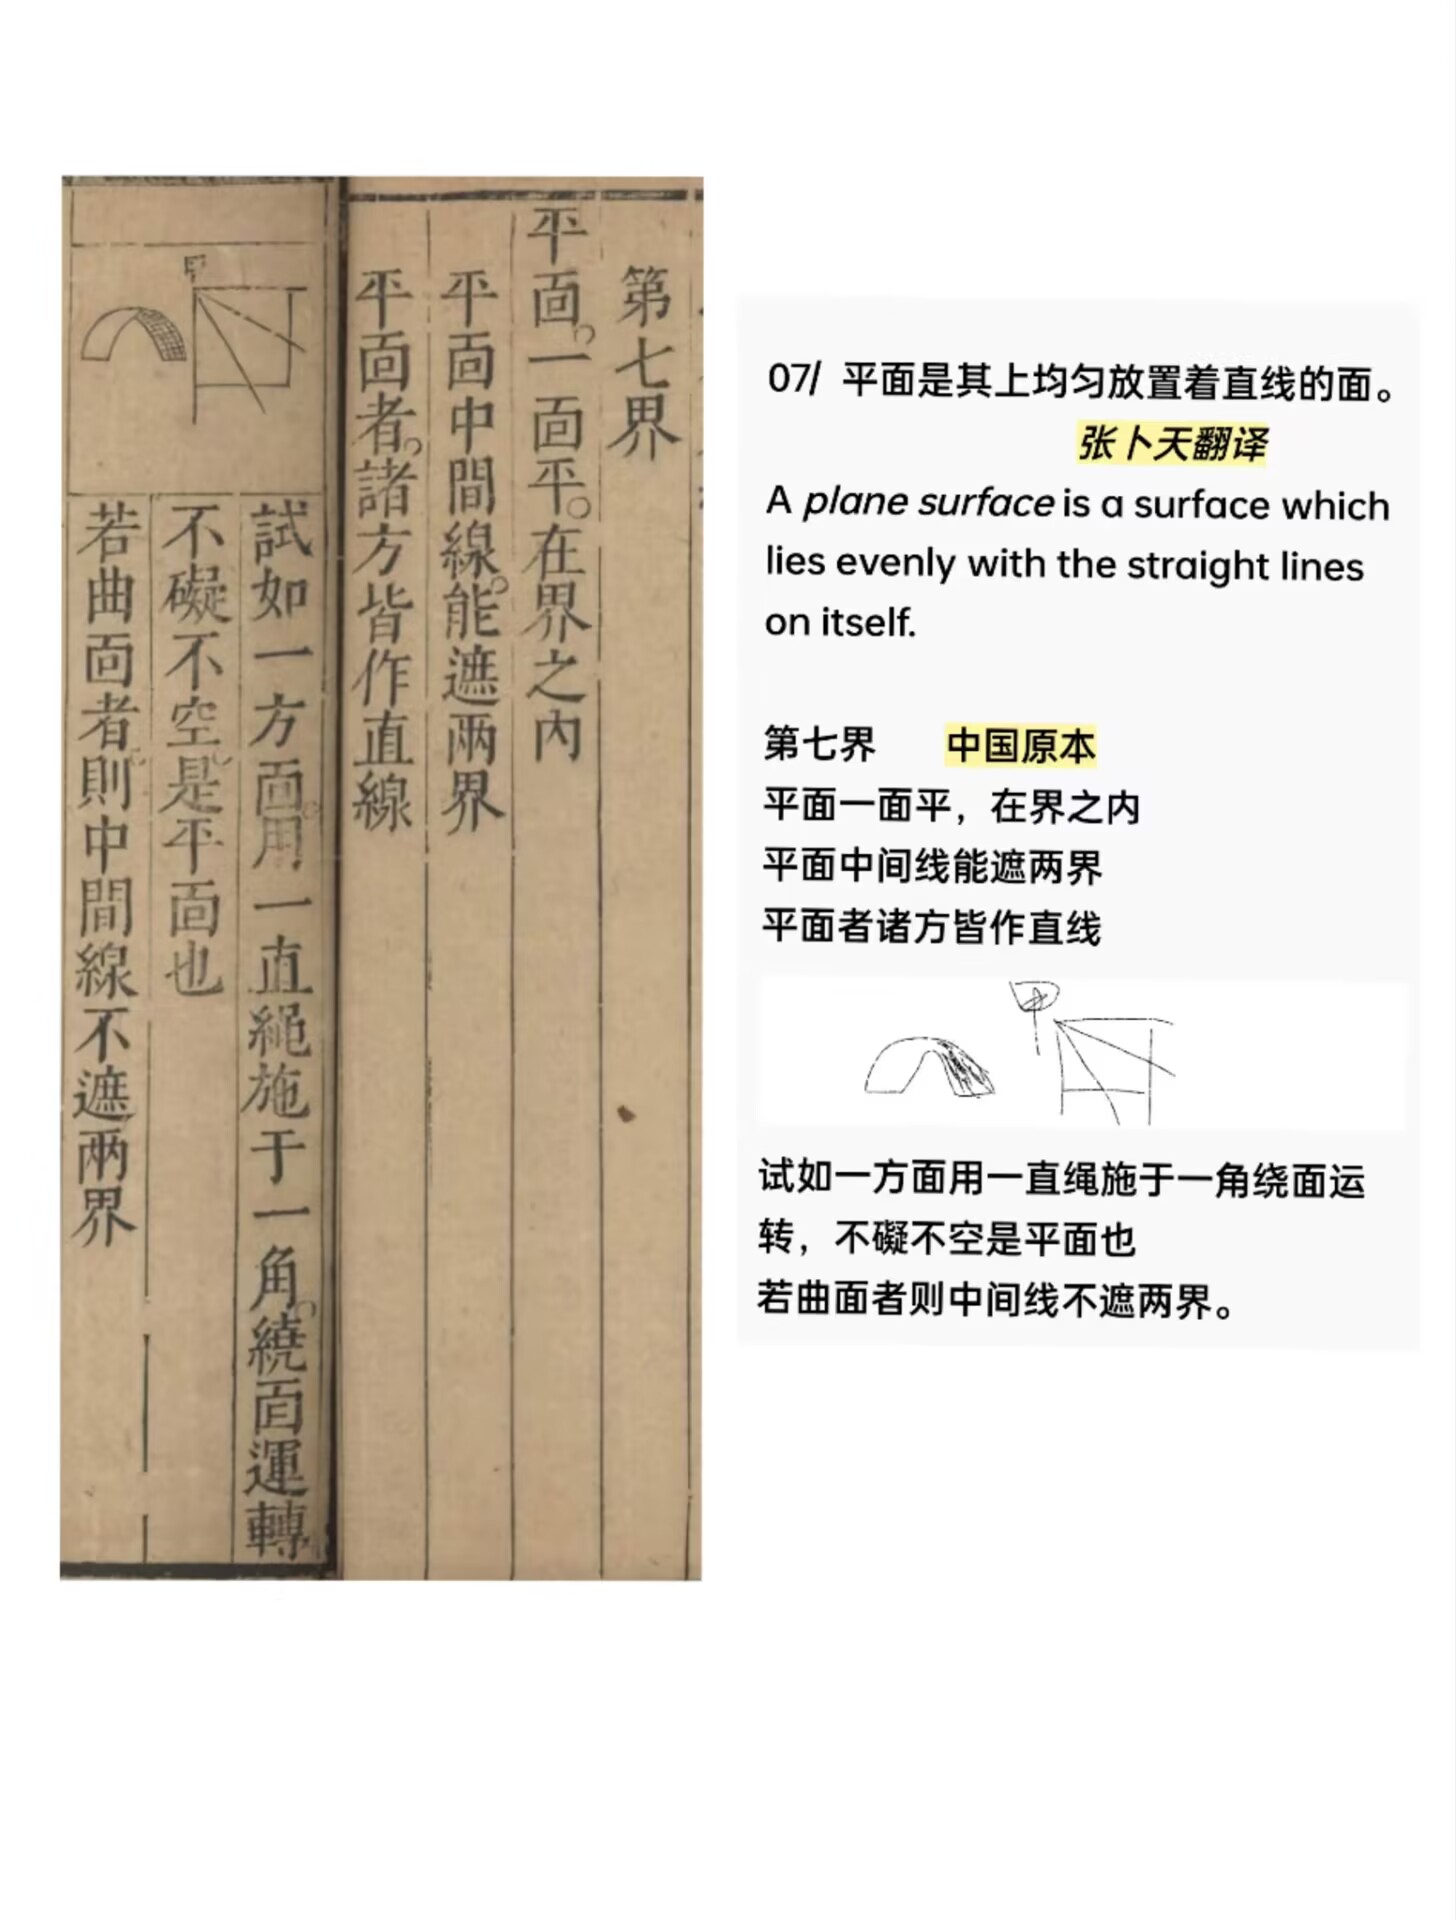 第七界
平面一面平在界之內
平面中間線能遮兩界
平面者諸方皆作直線
甲
試如一方面用一直繩施于一角繞面運轉
不礙不空是平面也
若曲面者則中間線不遮兩界
07/ 平面是其上均匀放置着直线的面。
张卜天翻译
A plane surface is a surface which
lies evenly with the straight lines
on itself.
第七界 中国原本
平面一面平，在界之内
平面中间线能遮两界
平面者诸方皆作直线
甲
试如一方面用一直绳施于一角绕面运
转，不礙不空是平面也
若曲面者则中间线不遮两界。